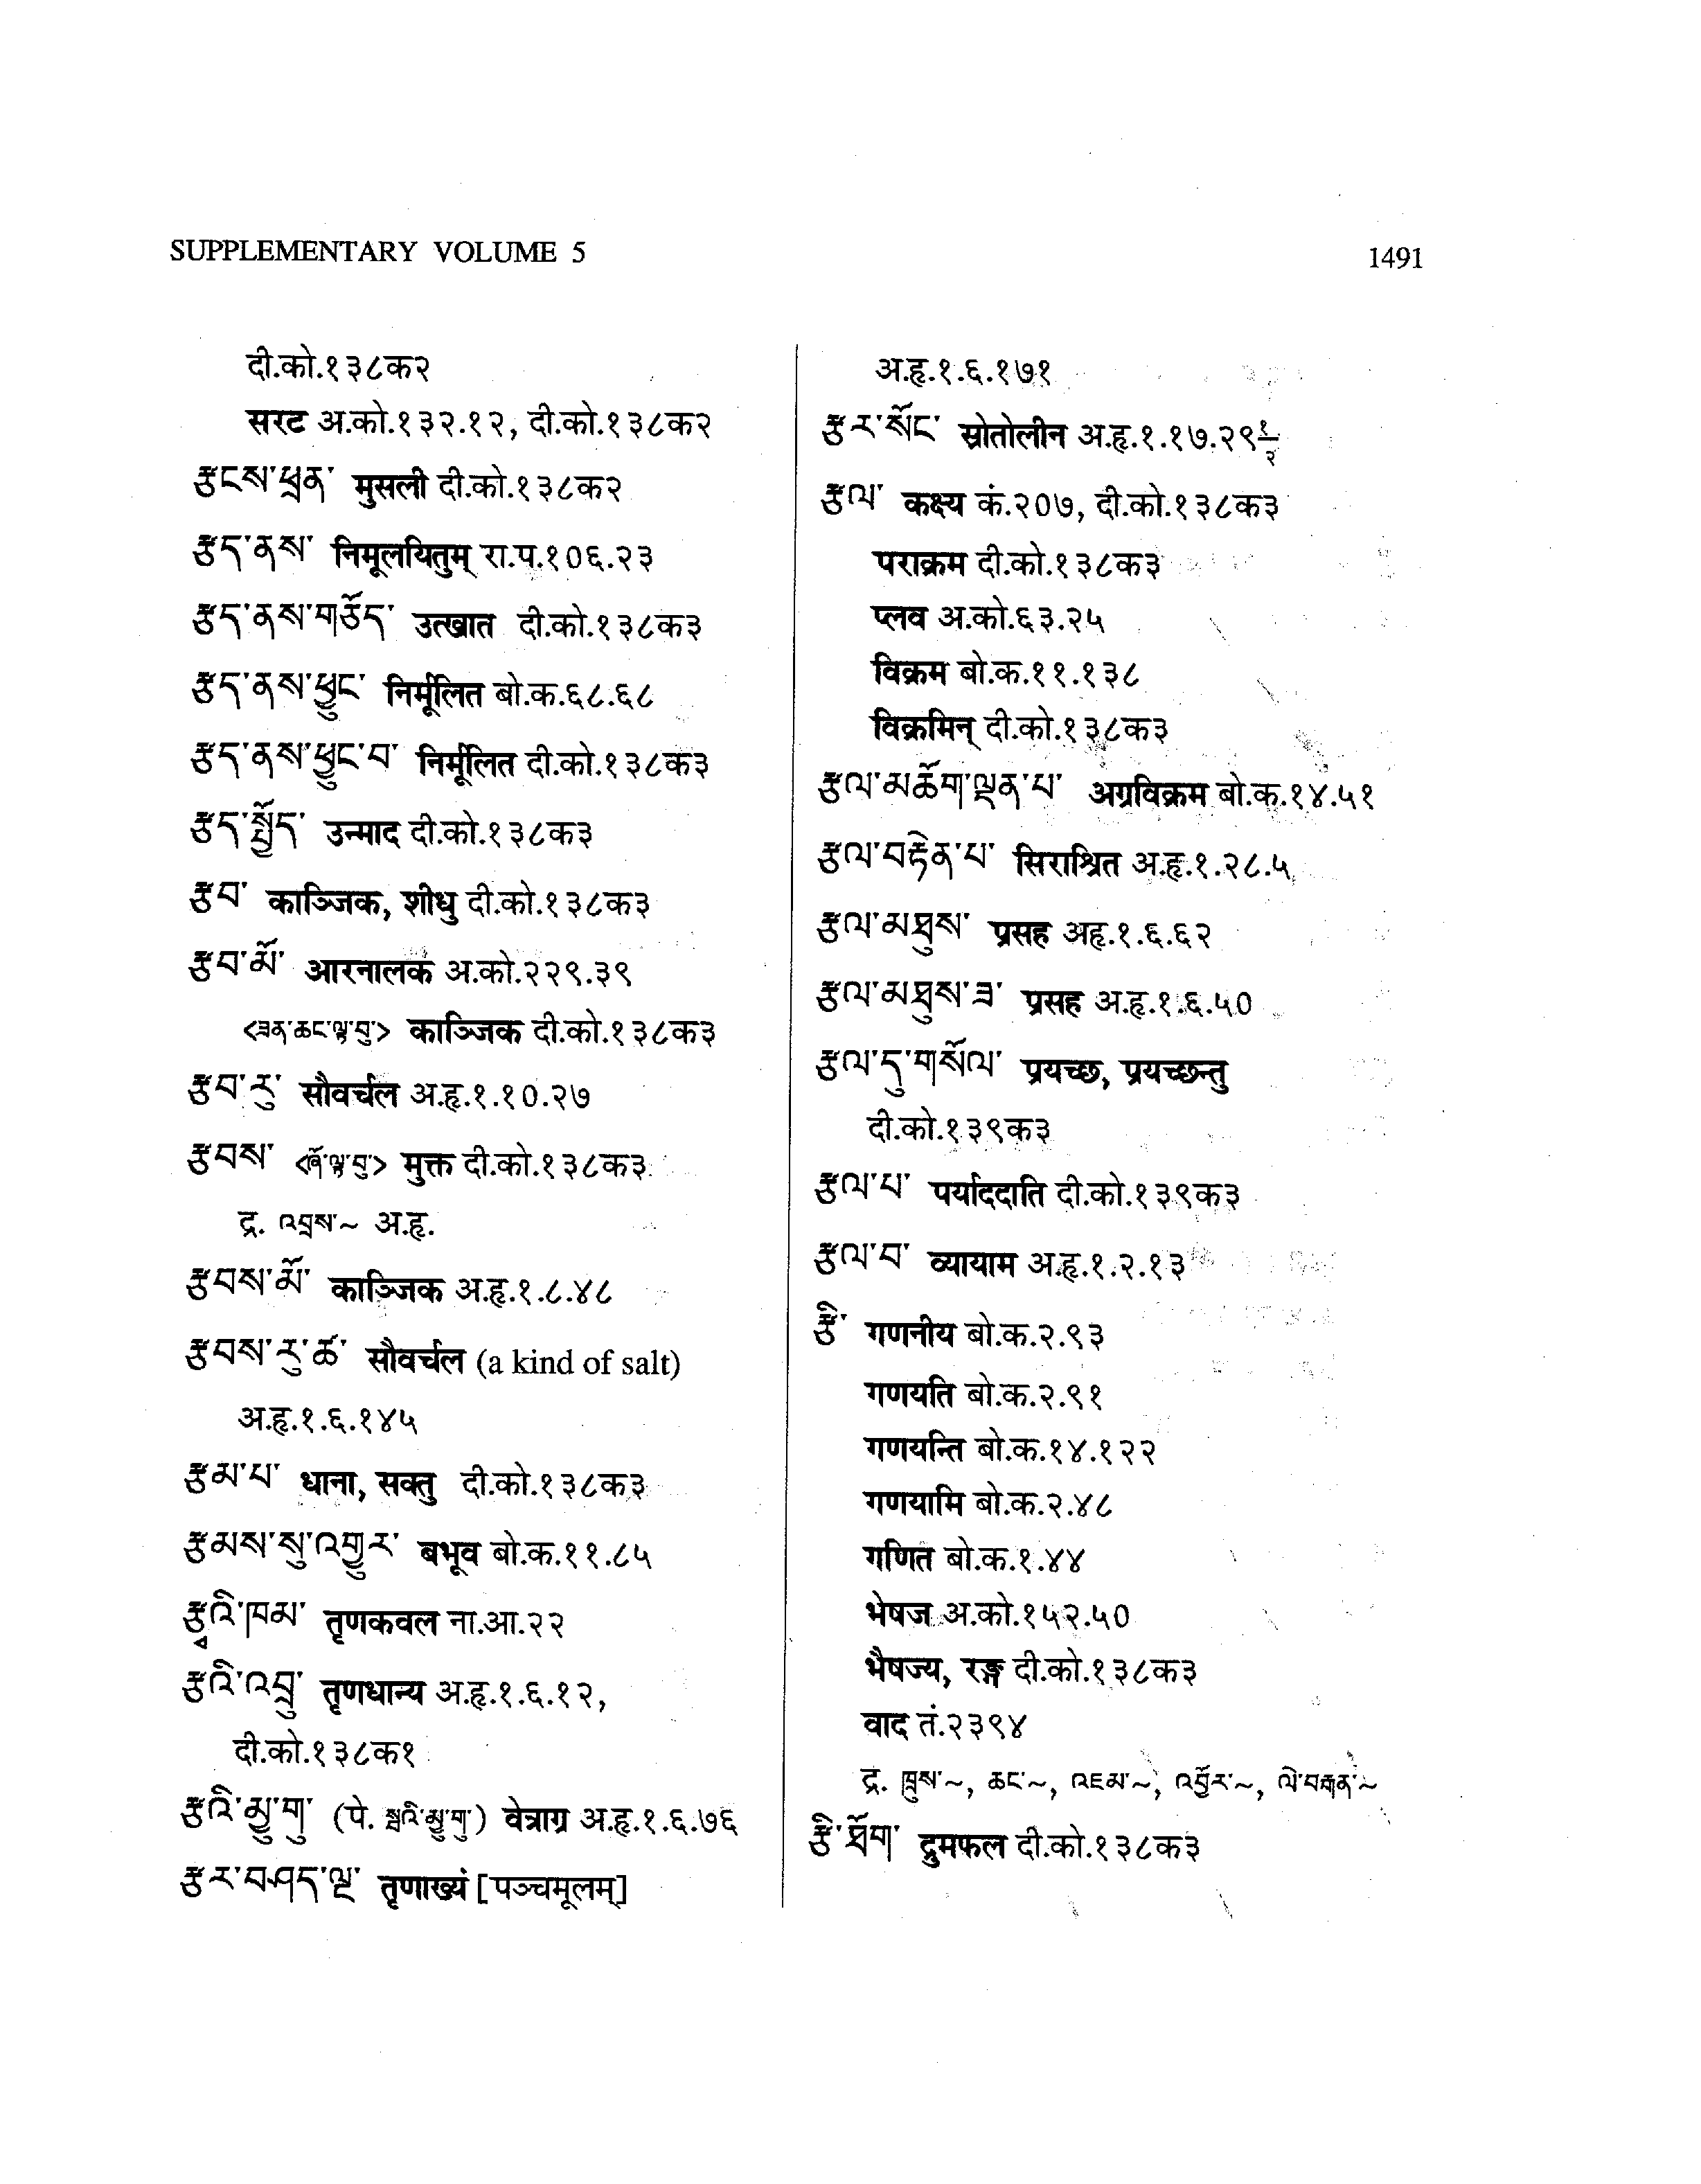 SUPPLEMENTARY VOLUME 5
1491
दी.को.१३८क२
सरट अ.को.१३२.१२, दी.को.१३८क२
རྩངས་ཕྲན་ मुसली दी.को.१३८क२
རྩད་ནས་ निमूलयितुम् रा.प.१०६.२३
རྩད་ནས་གཅོད་ उत्खात दी.को.१३८क३
རྩད་ནས་ཕྱུང་ निर्मूलित बो.क.६८.६८
རྩད་ནས་ཕྱུང་བ་ निर्मूलित दी.को.१३८क३
རྩད་སྤྱོད་ उन्माद दी.को.१३८क३
རྩབ་ काञ्जिक, शीधु दी.को.१३८क३
རྩབ་མོ་ आरनालक अ.को.२२९.३९
<ཟན་ཆང་ལྟ་བུ་> काञ्जिक दी.को.१३८क३
རྩབ་རུ་ सौवर्चल अ.हृ.१.१०.२७
རྩབས་ <ཞོ་ལྟ་བུ་> मुक्त दी.को.१३८क३
द्र. འབྲས་~ अ.हृ.
རྩབས་མོ་ काञ्जिक अ.हृ.१.८.४८
རྩབས་རུ་ཚ་ सौवर्चल (a kind of salt)
अ.हृ.१.६.१४५
རྩམ་པ་ धाना, सक्तु दी.को.१३८क३
རྩམས་སུ་འགྱུར་ बभूव बो.क.११.८५
རྩྭའི་ཁམ་ तृणकवल ना.आ.२२
རྩའི་འབྲུ་ तृणधान्य अ.हृ.१.६.१२,
दी.को.१३८क१
རྩའི་མྱུ་གུ་ (पे. སྦའི་མྱུ་གུ་) वेत्राग्र अ.हृ.१.६.७६
རྩར་བཤད་ལྔ་ तृणाख्यं [पञ्चमूलम्]
अ.हृ.१.६.१७१
རྩར་སོང་ स्रोतोलीन अ.हृ.१.१७.२९१/२
རྩལ་ कक्ष्य कं.२०७, दी.को.१३८क३
पराक्रम दी.को.१३८क३
प्लव अ.को.६३.२५
विक्रम बो.क.११.१३८
विक्रमिन् दी.को.१३८क३
རྩལ་མཆོག་ལྡན་པ་ अग्रविक्रम बो.क.१४.५१
རྩལ་བརྟེན་པ་ सिराश्रित अ.हृ.१.२८.५
རྩལ་མཐུས་ प्रसह अहृ.१.६.६२
རྩལ་མཐུས་ཟ་ प्रसह अ.हृ.१.६.५०
རྩལ་དུ་གསོལ་ प्रयच्छ, प्रयच्छन्तु
दी.को.१३९क३
རྩལ་པ་ पर्याददाति दी.को.१३९क३
རྩལ་བ་ व्यायाम अ.हृ.१.२.१३
རྩི་ गणनीय बो.क.२.९३
गणयति बो.क.२.९१
गणयन्ति बो.क.१४.१२२
गणयामि बो.क.२.४८
गणित बो.क.१.४४
भेषज अ.को.१५२.५०
भैषज्य, रङ्ग दी.को.१३८क३
वाद तं.२३९४
द्र. ཁྲུས་~, ཆང་~, འཇམ་~, འབྱོར་~, ལེ་བརྒན་~
རྩི་ཐོག་ द्रुमफल दी.को.१३८क३